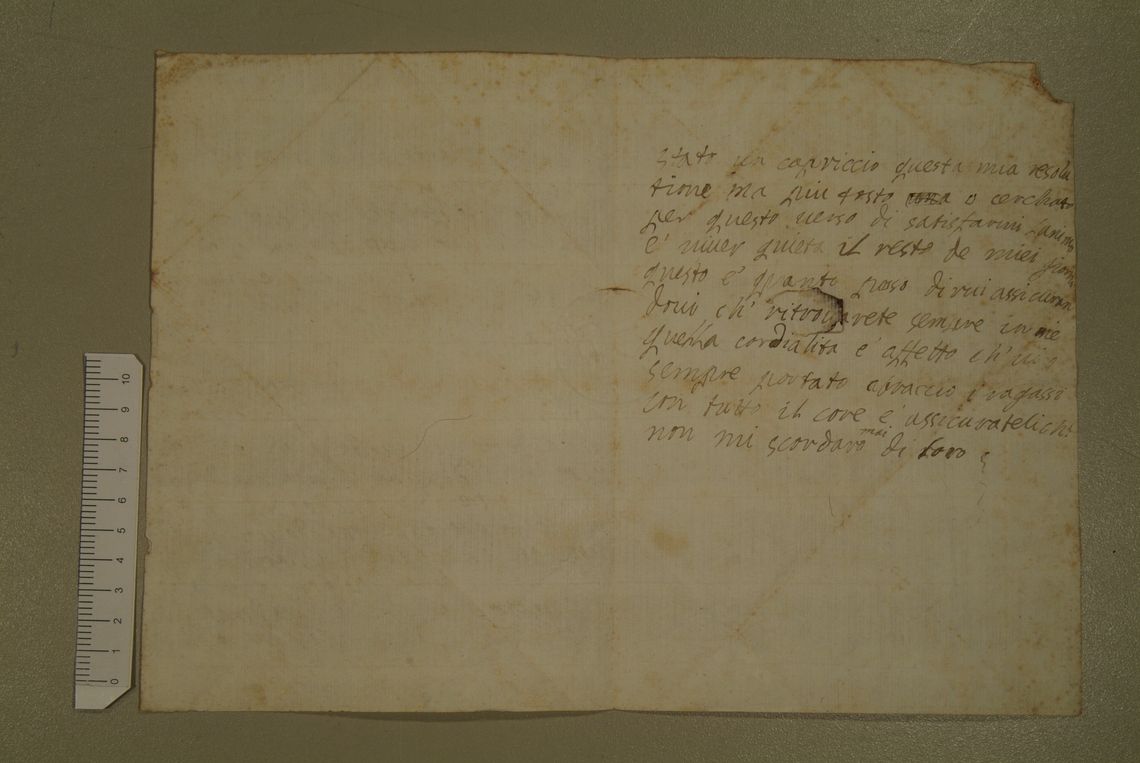 stato un capriccio questa mia resolu
tione ma piu tosto o cerchato
per questo verso di satisfarmi l'animo
e' viver quieta il resto de miei giorni
questo e' quanto posso dirvi assicuran
dovi ch' ritrovarete sempre in me
quella cordialita e' affetto ch' vi o
sempre portato abraccio i ragassi
con tutto il core e' assicurateli ch'
non mi scordaro mai di loro
10
9
8
7
6
5
4
3
2
1
0